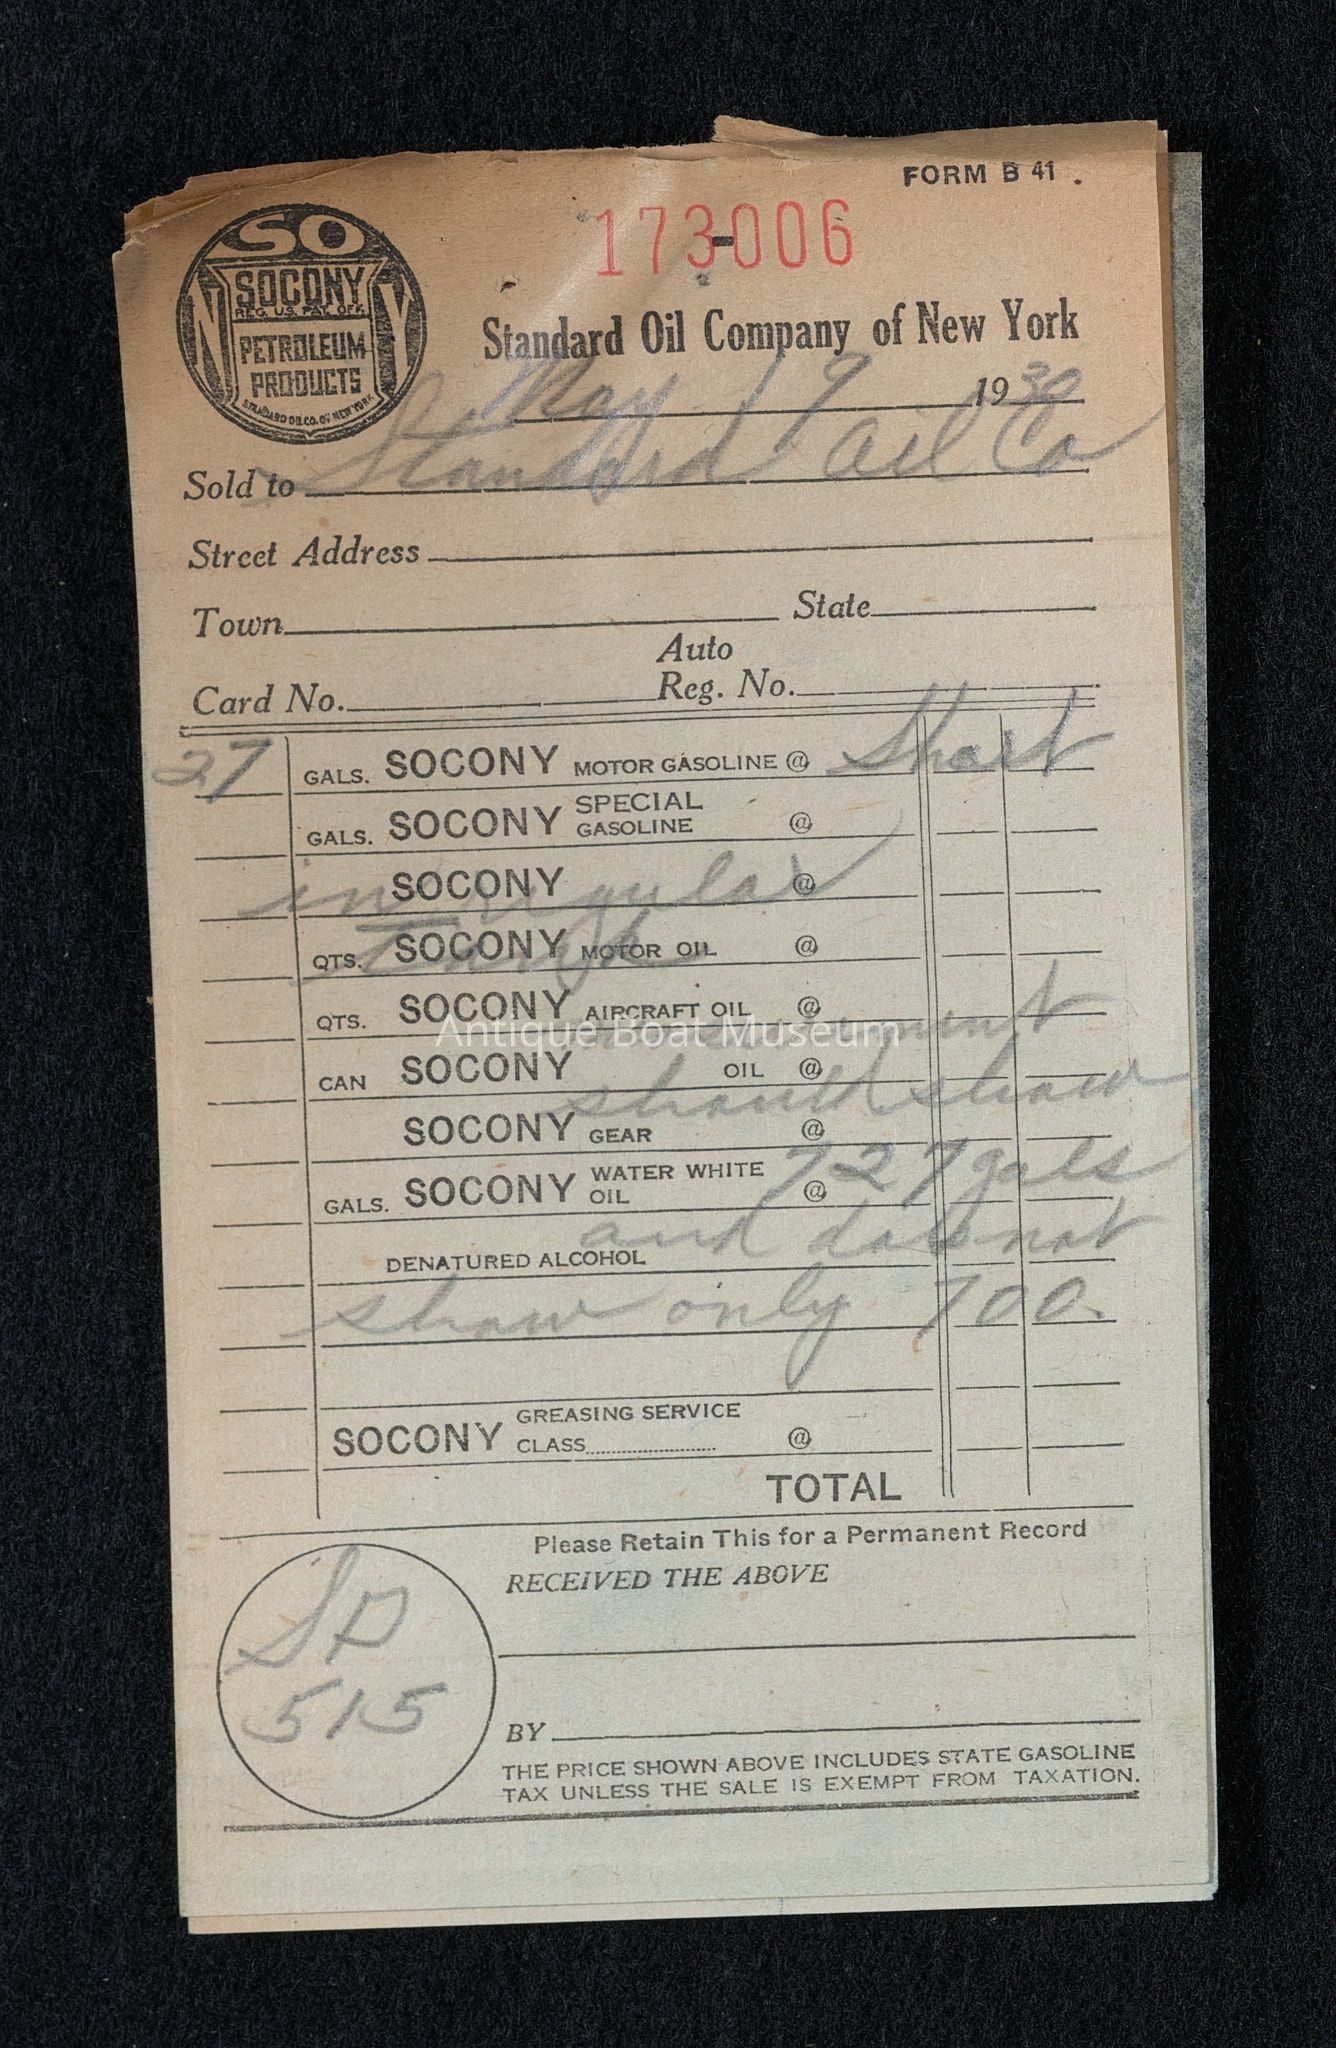 FORM B 41.
173-006
SO
NY
SOCONY
REG. U.S. PAT. OFF.
PETROLEUM
PRODUCTS
STANDARD OIL CO. OF NEW YORK
Standard Oil Company of New York
May 19 1930
Sold to Standard Oil Co
Street Address
Town State
Auto
Card No. Reg. No.
27 GALS. SOCONY MOTOR GASOLINE @ Short
GALS. SOCONY SPECIAL GASOLINE @
SOCONY @
in regular
QTS. SOCONY MOTOR OIL @
tank
QTS. SOCONY AIRCRAFT OIL @
Antique Boat Museum
CAN SOCONY OIL @
should show
SOCONY GEAR @
727 gals
GALS. SOCONY WATER WHITE OIL @
and does not
DENATURED ALCOHOL
show only 700.
SOCONY GREASING SERVICE
CLASS @
TOTAL
Please Retain This for a Permanent Record
RECEIVED THE ABOVE
SP
515
BY
THE PRICE SHOWN ABOVE INCLUDES STATE GASOLINE
TAX UNLESS THE SALE IS EXEMPT FROM TAXATION.